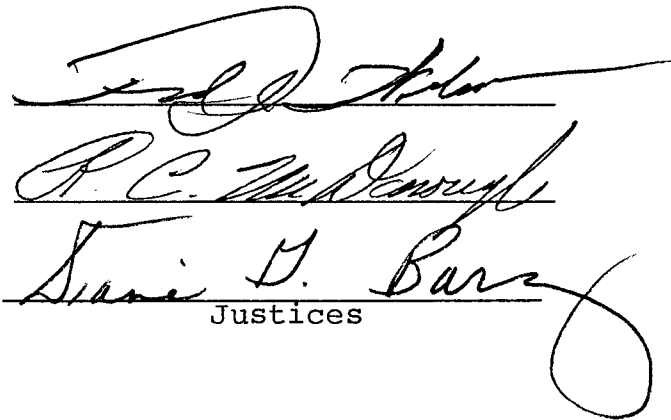 R. C. McDonough
Diane G. Barz
Justices